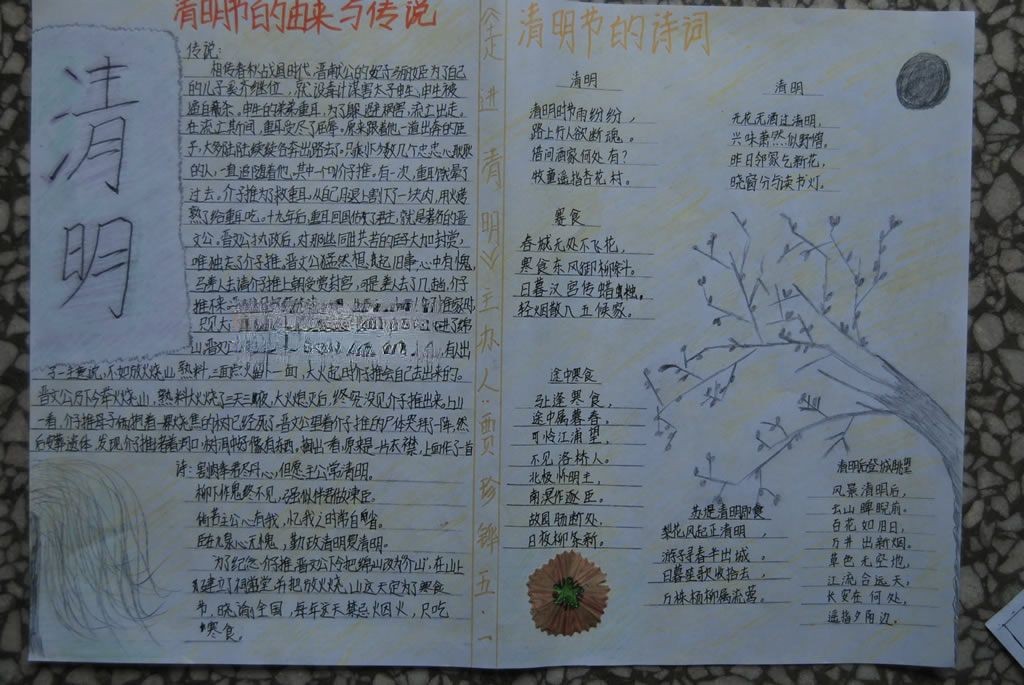 清明节的由来与传说
清明
传说:
相传春秋战国时代,晋献公的妃子骊姬为了自己
的儿子奚齐继位,就设毒计谋害太子申生,申生被
逼自杀。申生的弟弟重耳,为了躲避祸害,流亡出走。
在流亡期间,重耳受尽了屈辱。原来跟着他一道出奔的臣
子,大多陆陆续续各奔出路去了。只剩下少数几个忠心耿耿
的人,一直追随着他。其中一个叫介子推。有一次,重耳饿晕了
过去。介子推为了救重耳,从自己腿上割下一块肉,用火烤
熟了给重耳吃。十九年后,重耳回国做了君主,就是著名的晋
文公。晋文公执政后,对那些同甘共苦的臣子大加封赏,
唯独忘了介子推。晋文公猛然想起旧事,心中有愧,
马差人去请介子推上朝受赏封官。可是差人去了几趟,介子
推不来
只见大
山晋文公 有人出
了一主意说,不如放火烧山,三面点火留下一面,大火起时介子推会自己走出来的。
晋文公乃下令举火烧山,孰料大火烧了三天三夜,大火熄灭后,终究不见介子推出来。上山
一看,介子推母子俩抱着一棵烧焦的大柳树已经死了。晋文公望着介子推的尸体哭拜一阵,然
后安葬遗体,发现介子推脊梁堵着个柳树树洞,洞里好像有东西。掏出一看,原来是一片衣襟,上面作了一首
诗:割肉奉君尽丹心,但愿主公常清明。
柳下作鬼终不见,强似伴君做谏臣。
倘若主公心有我,忆我之时常自省。
臣在九泉心无愧,勤政清明复清明。
为了纪念介子推,晋文公下令把绵山改为“介山”,在山上
建立了祠堂,并把放火烧山这天定为了寒食
节,晓谕全国,每年这天禁忌烟火,只吃
寒食。
走进清明 主办人:贾珍铧 五·一
清明节的诗词
清明
清明时节雨纷纷,
路上行人欲断魂。
借问酒家何处有?
牧童遥指杏花村。
清明
无花无酒过清明,
兴味萧然似野僧。
昨日邻家乞新花,
晓窗分与读书灯。
寒食
春城无处不飞花,
寒食东风御柳斜。
日暮汉宫传蜡烛,
轻烟散入五侯家。
途中寒食
马上逢寒食,
途中属暮春。
可怜江浦望,
不见洛桥人。
北极怀明主,
南溟作逐臣。
故园肠断处,
日夜柳条新。
苏堤清明即食
梨花风起正清明,
游子寻春半出城。
日暮笙歌收拾去,
万株杨柳属流莺。
清明后登城眺望
风景清明后,
云山睥睨前。
百花如旧日,
万井出新烟。
草色无空地,
江流合远天,
长安在何处,
遥指夕阳边。